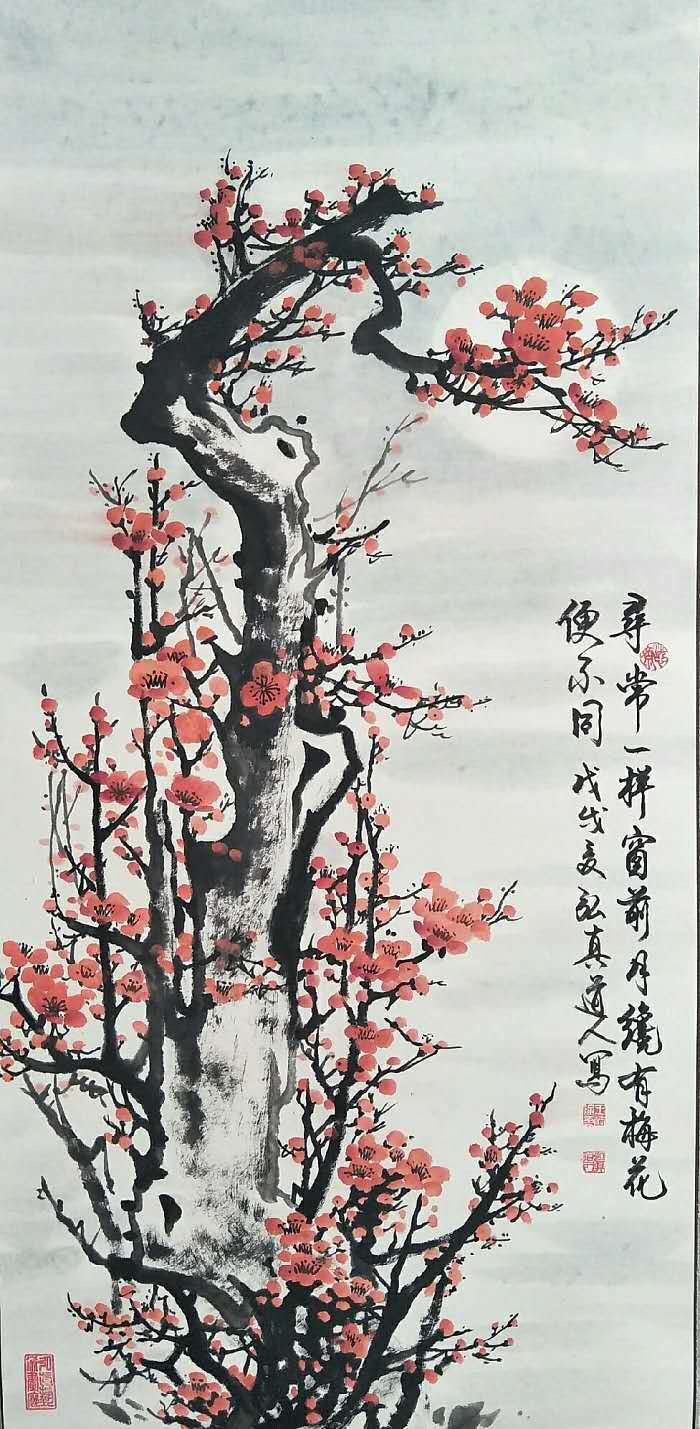 尋常一样窗前月纔有梅花
便不同 戊戌夏 真道人寫